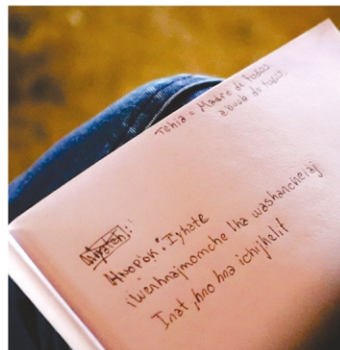 Tehia = Madre de todos
abuela de todos.
Hwopok: Iyhate
iwenhnajmomche lha washancheyaj
Inat, hno hna ichujhelit